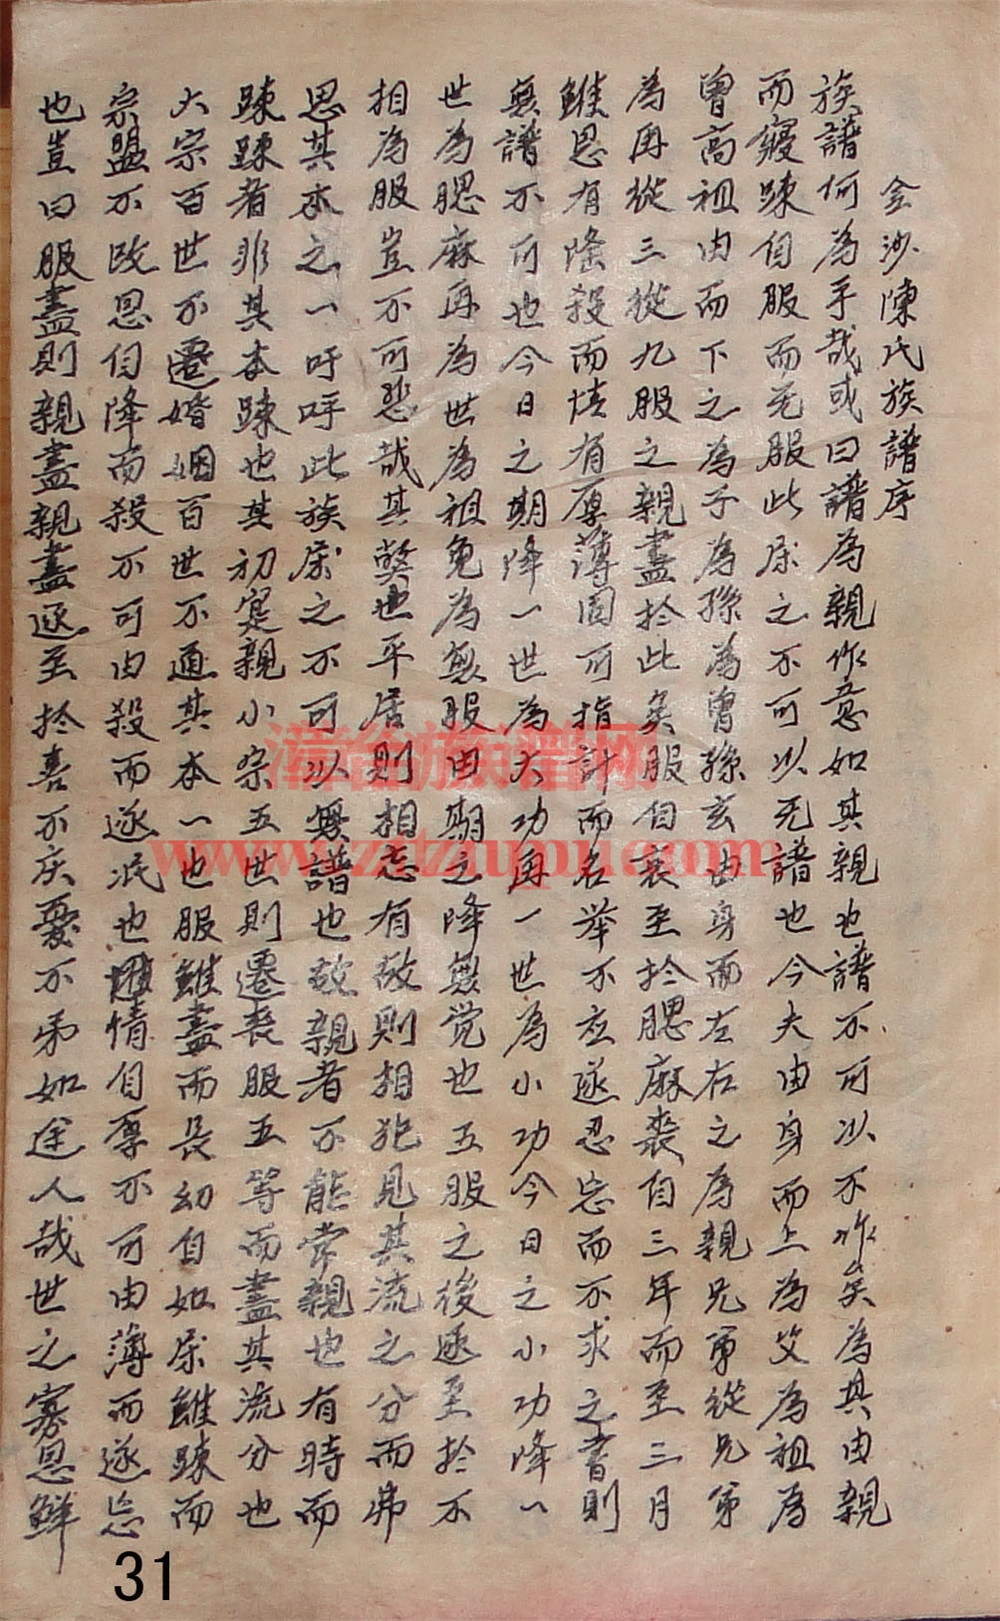 金沙陳氏族譜序
族譜何為乎哉或曰譜為親作意如其親也譜不可以不作矣為其由親
而寢踈自服而无服此屎之不可以无譜也今夫由身而上為父為祖為
曾高祖由而下之為子為孫為曾孫玄由身而左右之為親兄弟從兄弟
為再從三從九服之親盡於此矣服自衰至於腮麻裘自三年而至三月
雖恩有隆殺而情有厚薄固可指計而名举不应遂忍忘而不求之書則
無譜不可也今日之期降一世為大功再一世為小功今日之小功降一
世為腮麻再為世為祖免為無服由期之降無覚也五服之後遞至於不
相為服豈不可悲哉其獘也平居則相忘有故則相犯見其流之分而弗
思其本之一呼呼此族屎之不可以無譜也故親者不能常親也有時而
踈踈者非其本踈也其初寔親小宗五世則遷喪服五等而盡其流分也
大宗百世不遷婚姻百世不通其本一也服雖盡而長幼自如屎雖踈而
宗盟不改恩自降而殺不可由殺而遂泯也情自厚不可由薄而遂忘
也豈曰服盡則親盡親盡遞至於喜不庆憂不弔如途人哉世之寡恩鮮
漳台族譜网
www.ztzupu.com
31